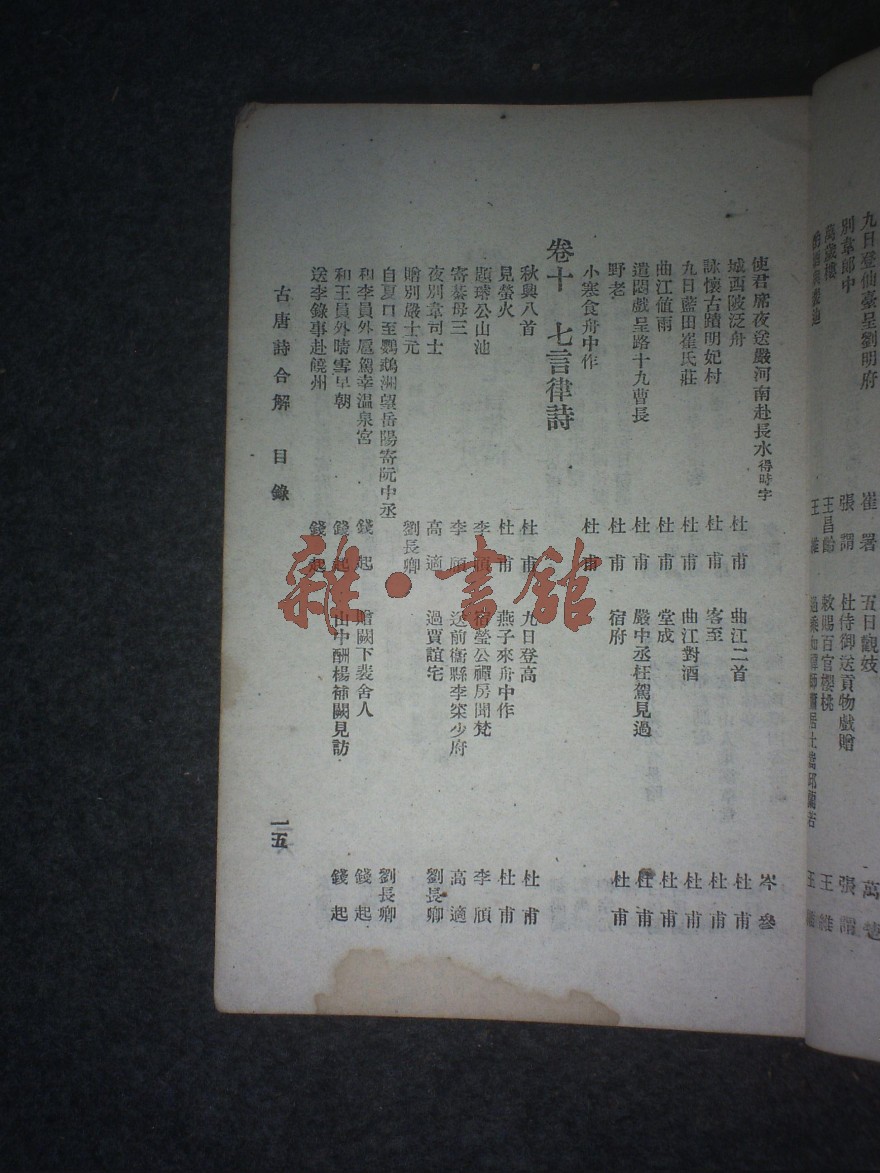 九日登仙臺呈劉明府 崔署 五日觀妓 萬楚
別韋郎中 張謂 杜侍御送貢物戲贈 張謂
萬歲樓 王昌齡 敕賜百官櫻桃 王維
王維
使君席夜送嚴河南赴長水得時字 岑參
城西陂泛舟 杜甫 曲江二首 杜甫
詠懷古蹟明妃村 杜甫 客至 杜甫
九日藍田崔氏莊 杜甫 曲江對酒 杜甫
曲江值雨 杜甫 堂成 杜甫
遣悶戲呈路十九曹長 杜甫 嚴中丞枉駕見過 杜甫
野老 杜甫 宿府 杜甫
小寒食舟中作 杜甫
卷十 七言律詩
秋興八首 杜甫 九日登高 杜甫
見螢火 杜甫 燕子來舟中作 杜甫
題璿公山池 李頎 宿瑩公禪房聞梵 李頎
寄綦毋三 李頎 送前衞縣李寀少府 高適
夜別韋司士 高適 過賈誼宅 劉長卿
贈別嚴士元 劉長卿
自夏口至鸚鵡洲望岳陽寄阮中丞 劉長卿
和李員外扈駕幸溫泉宮 錢起 贈闕下裴舍人 錢起
和王員外晴雪早朝 錢起 山中酬楊補闕見訪 錢起
送李錄事赴饒州 錢起
古唐詩合解 目錄 一五
雜·書館